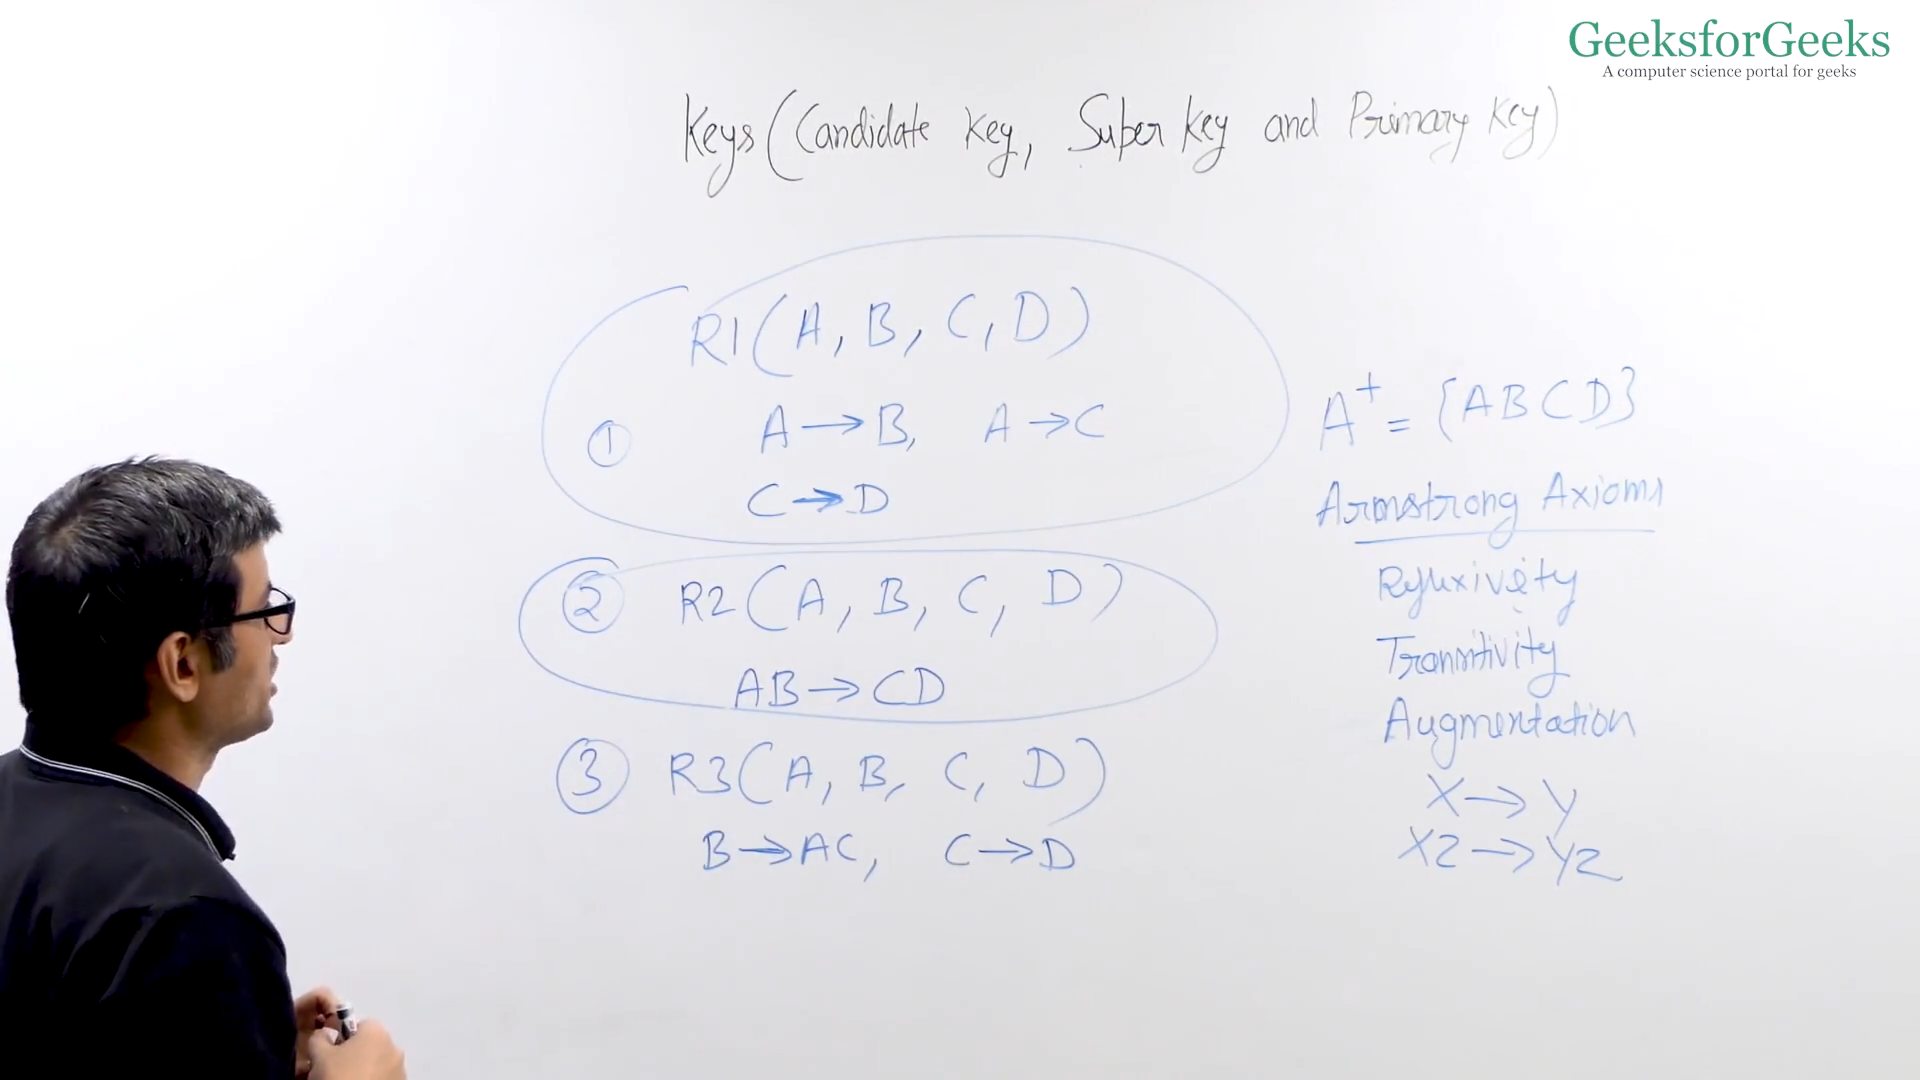 GeeksforGeeks
A computer science portal for geeks
Keys (Candidate Key, Super Key and Primary Key)
R1(A, B, C, D)
① A → B, A → C
C → D
② R2(A, B, C, D)
AB → CD
③ R3(A, B, C, D)
B → AC, C → D
A⁺ = {ABCD}
Armstrong Axioms
Reflexivity
Transitivity
Augmentation
X → Y
XZ → YZ